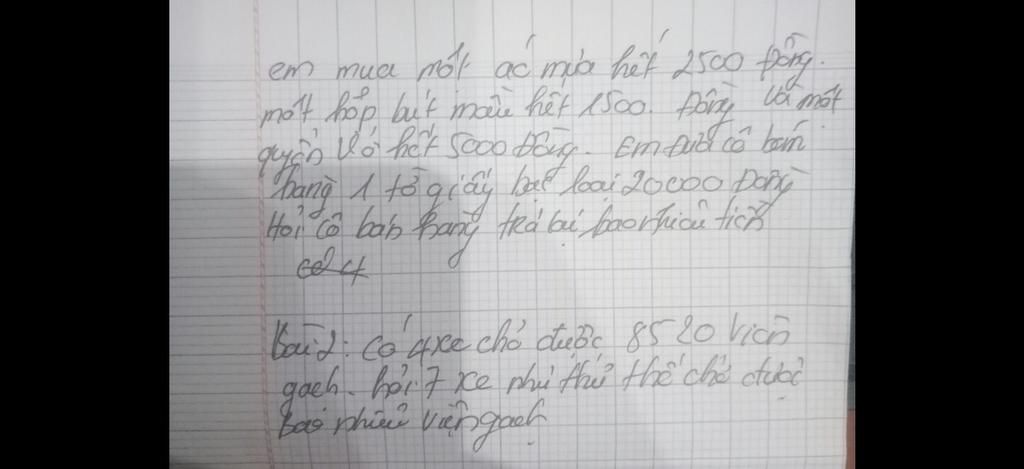 em mua một ác mùa hết 2500 Đồng.
một hộp bút màu hết 1500. Đồng và một
quyển Vở hết 5000 Đồng. Em Đưa cô bán
hang 1 tờ giấy bạc loại 20000 Đồng
Hỏi cô bán hang trả lại bao nhiêu tiền
Bài 2: Có 4 xe chở được 8520 Viên
gạch. hỏi 7 xe như thế thế chở được
bao nhiêu viên gạch